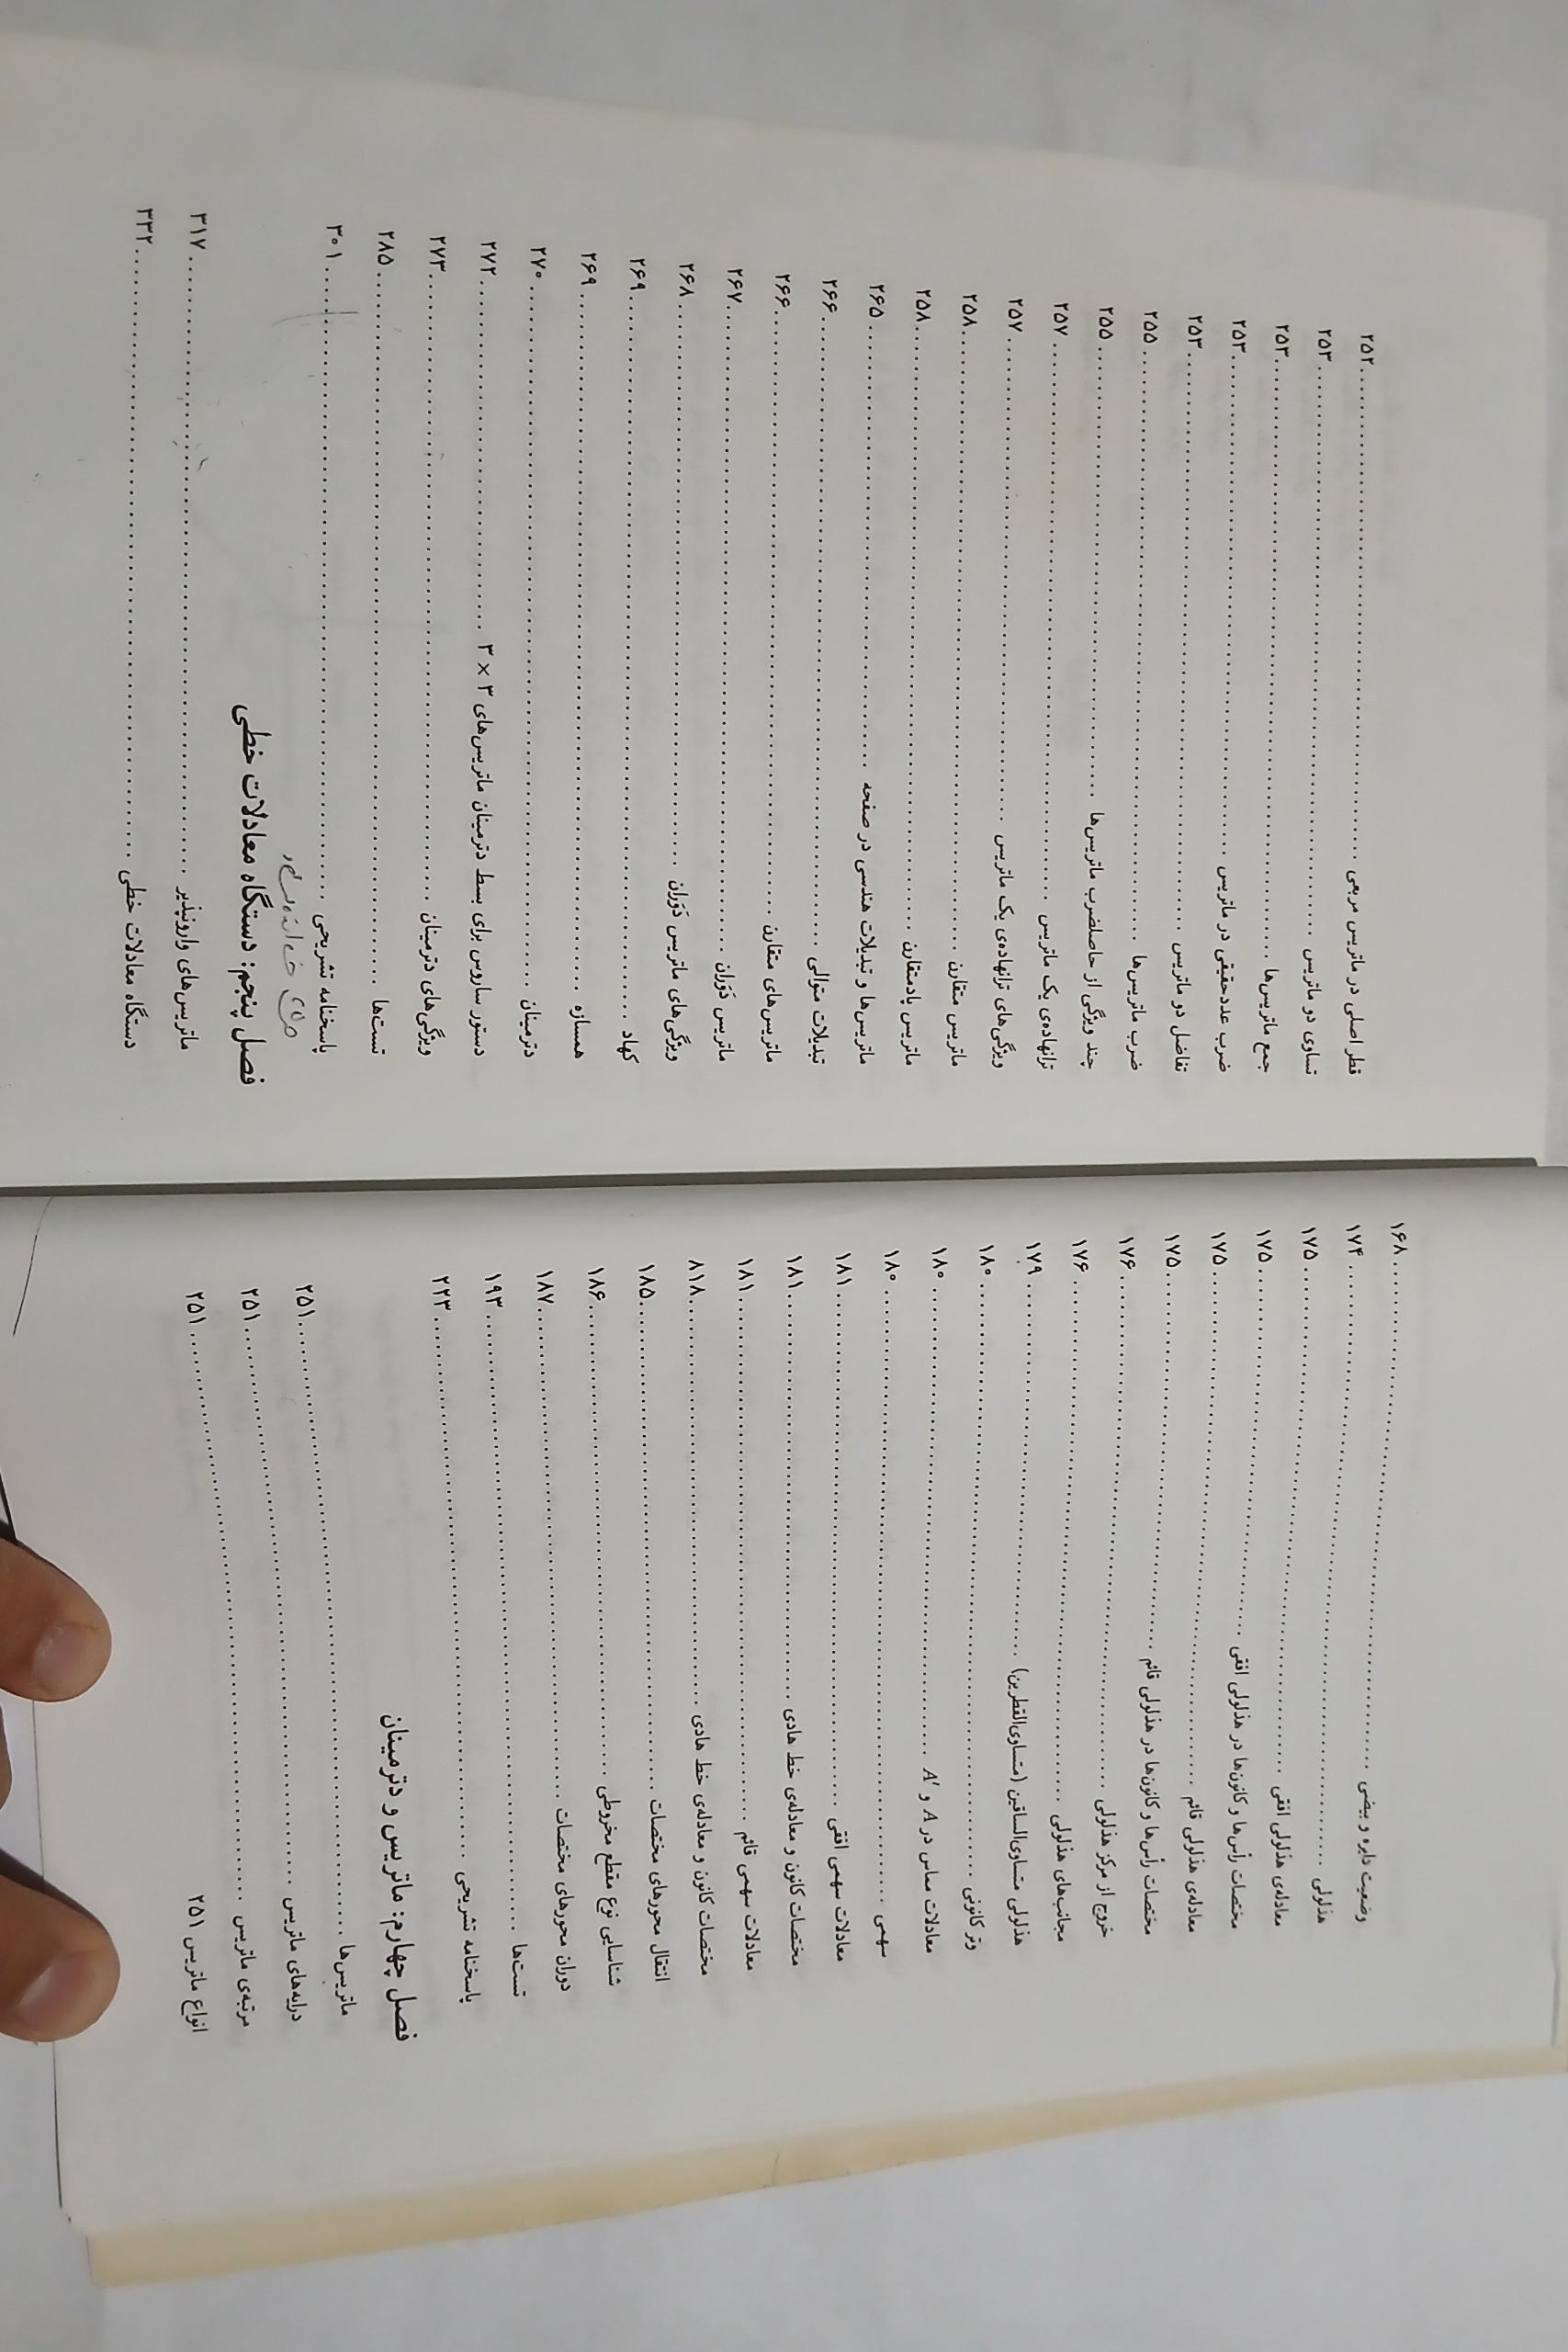 وضعیت دایره و بیضی ........ ۱۶۸
هذلولی ........ ۱۷۴
معادله‌ی هذلولی افقی ........ ۱۷۵
مختصات رأس‌ها و کانون‌ها در هذلولی افقی ........ ۱۷۵
معادله‌ی هذلولی قائم ........ ۱۷۵
مختصات رأس‌ها و کانون‌ها در هذلولی قائم ........ ۱۷۵
خروج از مرکز هذلولی ........ ۱۷۶
مجانب‌های هذلولی ........ ۱۷۶
هذلولی متساوی‌الساقین (متساوی‌القطرین) ........ ۱۷۹
وتر کانونی ........ ۱۸۰
معادلات مماس در A و A′ ........ ۱۸۰
سهمی ........ ۱۸۰
معادلات سهمی افقی ........ ۱۸۱
مختصات کانون و معادله‌ی خط هادی ........ ۱۸۱
معادلات سهمی قائم ........ ۱۸۱
مختصات کانون و معادله‌ی خط هادی ........ ۸۱۸
انتقال محورهای مختصات ........ ۱۸۵
شناسایی نوع مقطع مخروطی ........ ۱۸۶
دوران محورهای مختصات ........ ۱۸۷
تست‌ها ........ ۱۹۳
پاسخنامه تشریحی ........ ۲۲۳
فصل چهارم: ماتریس و دترمینان
ماتریس‌ها ........ ۲۵۱
درایه‌های ماتریس ........ ۲۵۱
مرتبه‌ی ماتریس ........ ۲۵۱
انواع ماتریس ۲۵۱
قطر اصلی در ماتریس مربعی ........ ۲۵۲
تساوی دو ماتریس ........ ۲۵۳
جمع ماتریس‌ها ........ ۲۵۳
ضرب عددحقیقی در ماتریس ........ ۲۵۳
تفاضل دو ماتریس ........ ۲۵۳
ضرب ماتریس‌ها ........ ۲۵۵
چند ویژگی از حاصلضرب ماتریس‌ها ........ ۲۵۵
ترانهاده‌ی یک ماتریس ........ ۲۵۷
ویژگی‌های ترانهاده‌ی یک ماتریس ........ ۲۵۷
ماتریس متقارن ........ ۲۵۸
ماتریس پادمتقارن ........ ۲۵۸
ماتریس‌ها و تبدیلات هندسی در صفحه ........ ۲۶۵
تبدیلات متوالی ........ ۲۶۶
ماتریس‌های متقارن ........ ۲۶۶
ماتریس دَوَران ........ ۲۶۷
ویژگی‌های ماتریس دَوَران ........ ۲۶۸
کهاد ........ ۲۶۹
همسازه ........ ۲۶۹
دترمینان ........ ۲۷۰
دستور ساروس برای بسط دترمینان ماتریس‌های ۳ × ۳ ........ ۲۷۲
ویژگی‌های دترمینان ........ ۲۷۳
تست‌ها ........ ۲۸۵
پاسخنامه تشریحی ........ ۳۰۱
فصل پنجم: دستگاه معادلات خطی
ماتریس‌های وارونپذیر ........ ۳۱۷
دستگاه معادلات خطی ........ ۳۳۲